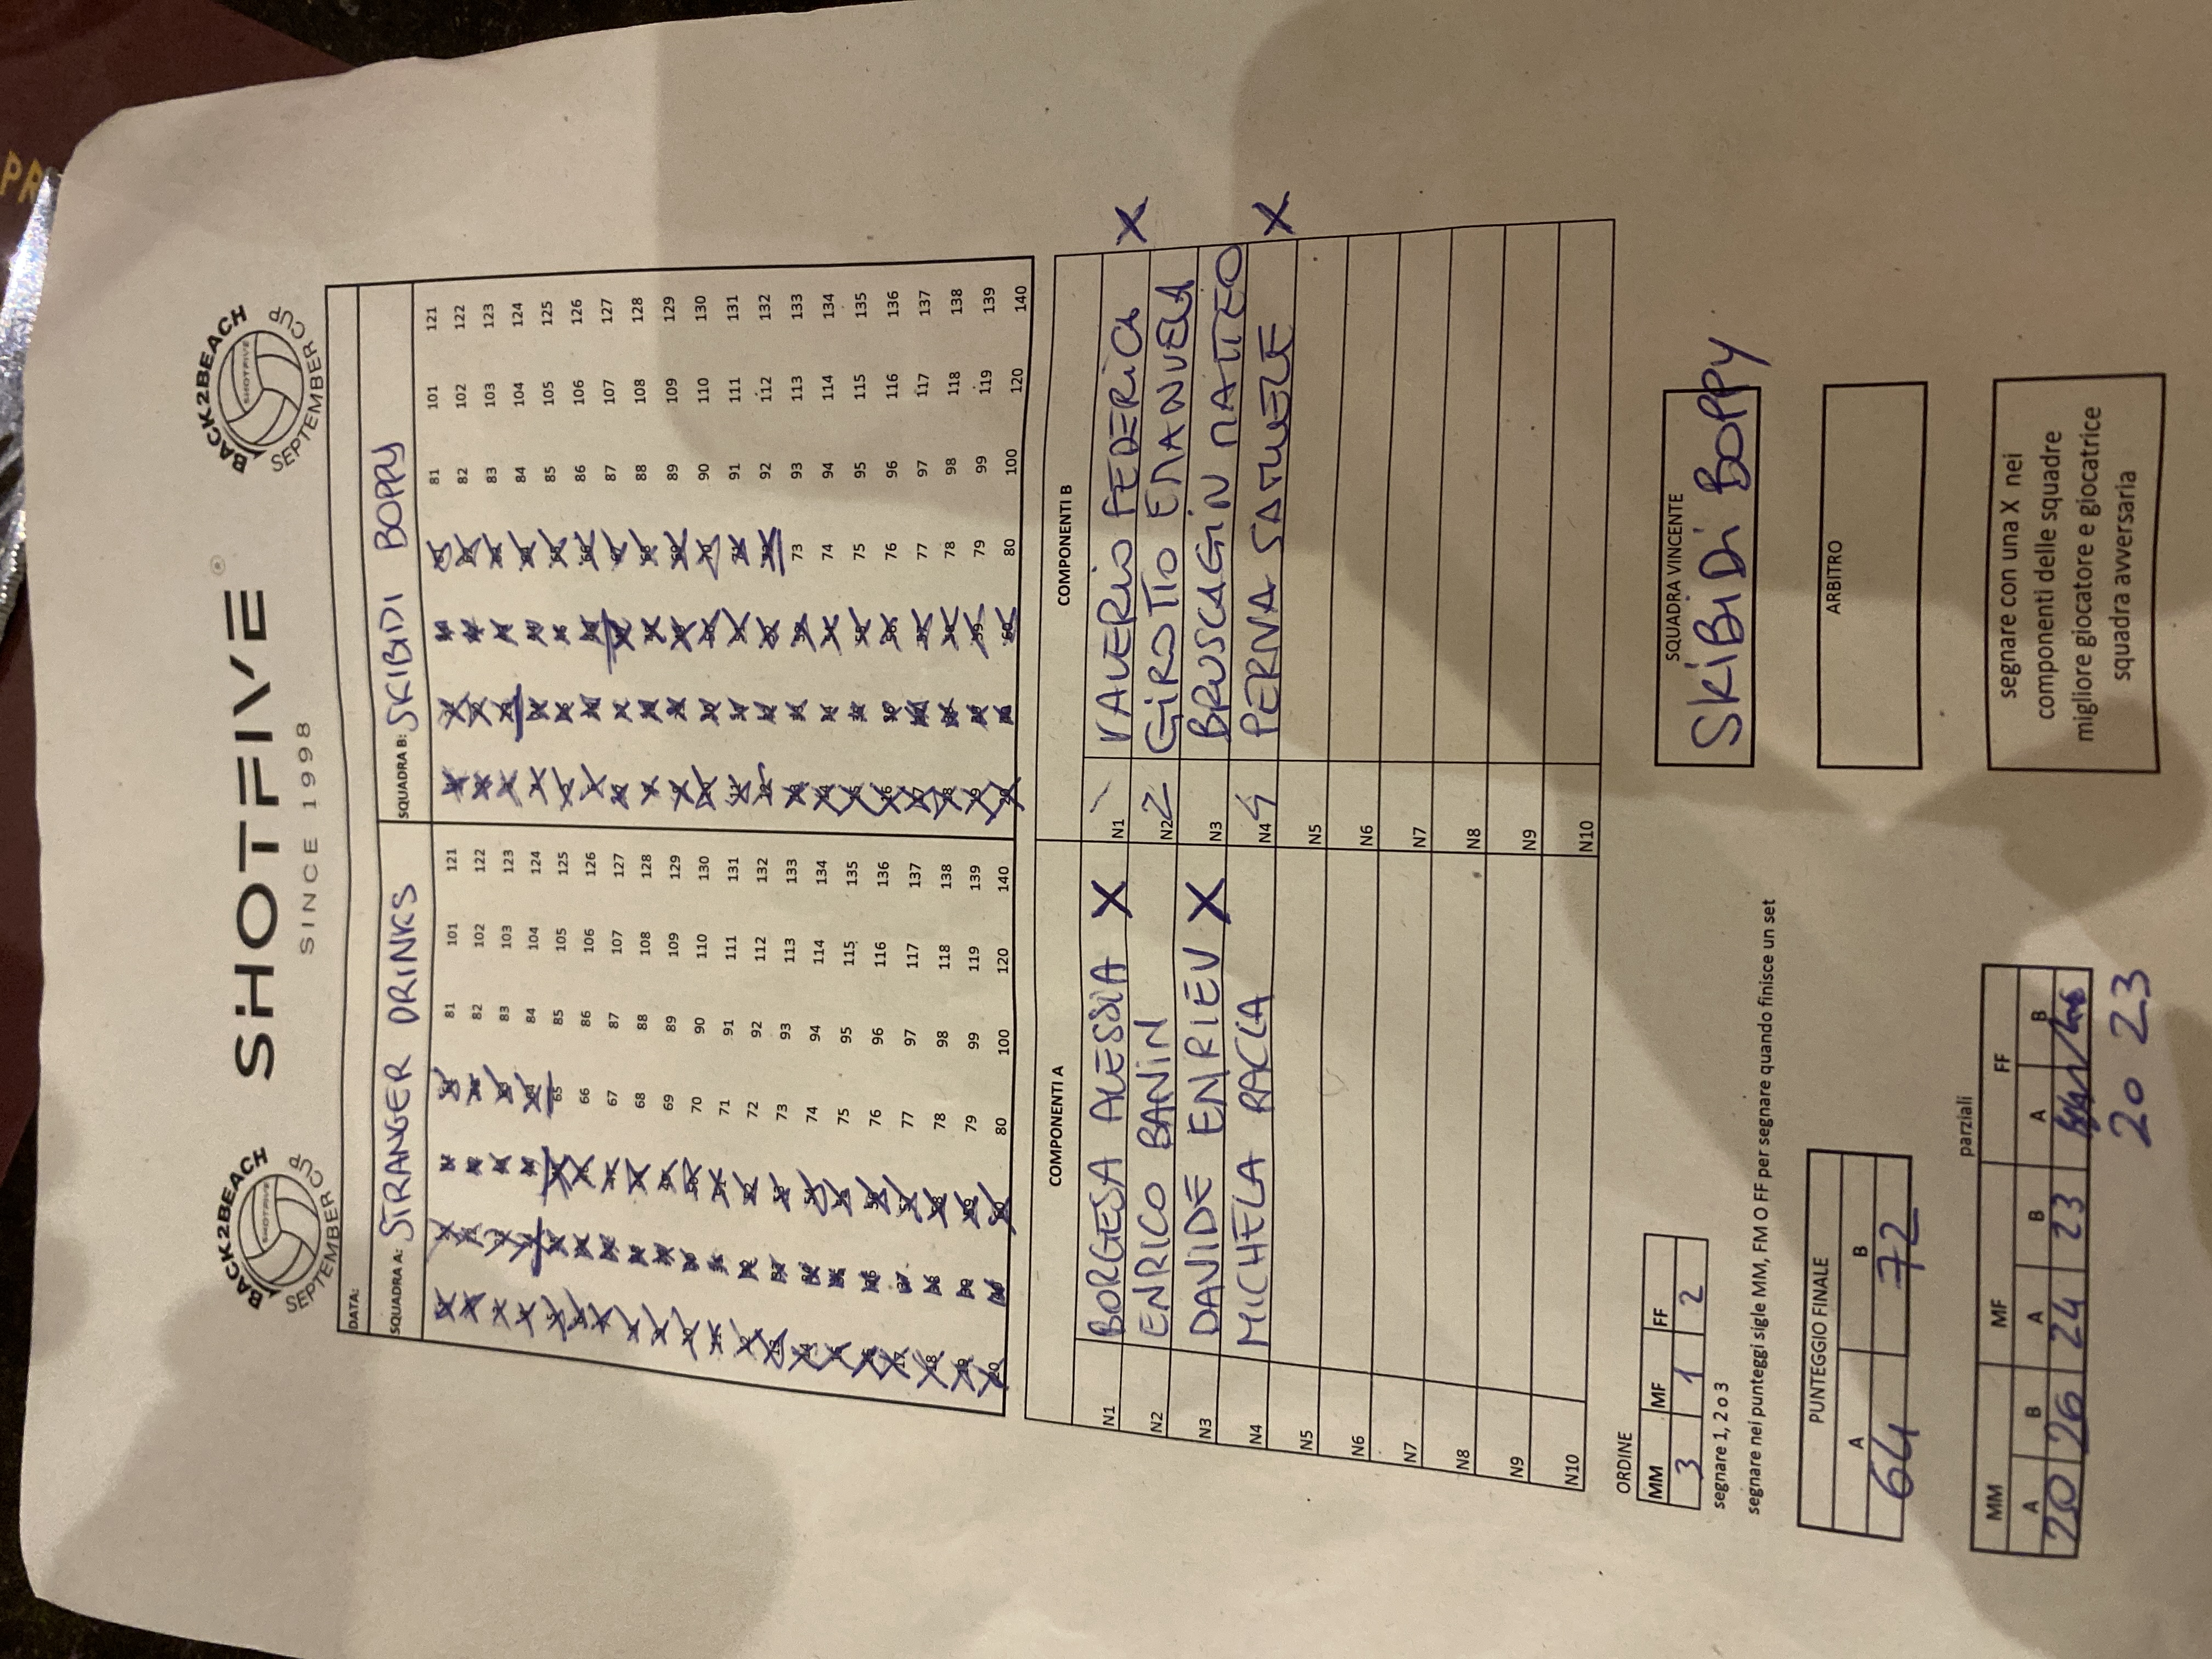 PR
BACK2BEACH
SHOTFIVE
SEPTEMBER CUP
SHOTFIVE
SINCE 1998
BACK2BEACH
SHOTFIVE
SEPTEMBER CUP
DATA:
SQUADRA A: STRANGER DRINKS SQUADRA B: SKIBIDI BOPPY
81 101 121 81 101 121
82 102 122 82 102 122
83 103 123 83 103 123
84 104 124 84 104 124
65 85 105 125 85 105 125
66 86 106 126 86 106 126
67 87 107 127 87 107 127
68 88 108 128 88 108 128
69 89 109 129 89 109 129
70 90 110 130 90 110 130
71 91 111 131 91 111 131
72 92 112 132 92 112 132
73 93 113 133 73 93 113 133
74 94 114 134 74 94 114 134
75 95 115 135 75 95 115 135
76 96 116 136 76 96 116 136
77 97 117 137 77 97 117 137
78 98 118 138 78 98 118 138
79 99 119 139 79 99 119 139
80 100 120 140 80 100 120 140
COMPONENTI A COMPONENTI B
N1 BORGESA ALESSIA X N1 VALERIO FEDERICA X
N2 ENRICO BANIN N2 2 GIROTTO EMANUELA
N3 DAVIDE ENRIEV X N3 BRUSCAGIN MATTEO
N4 MICHELA RACCA N4 4 PERNA SAMUELE X
N5 N5
N6 N6
N7 N7
N8 N8
N9 N9
N10 N10
ORDINE
MM MF FF
3 1 2
segnare 1, 2 o 3
segnare nei punteggi sigle MM, FM O FF per segnare quando finisce un set
SQUADRA VINCENTE
SKIBIDI BOPPY
PUNTEGGIO FINALE
A B
64 72
ARBITRO
parziali
MM MF FF
A B A B A B
20 26 24 23
20 23
segnare con una X nei
componenti delle squadre
migliore giocatore e giocatrice
squadra avversaria